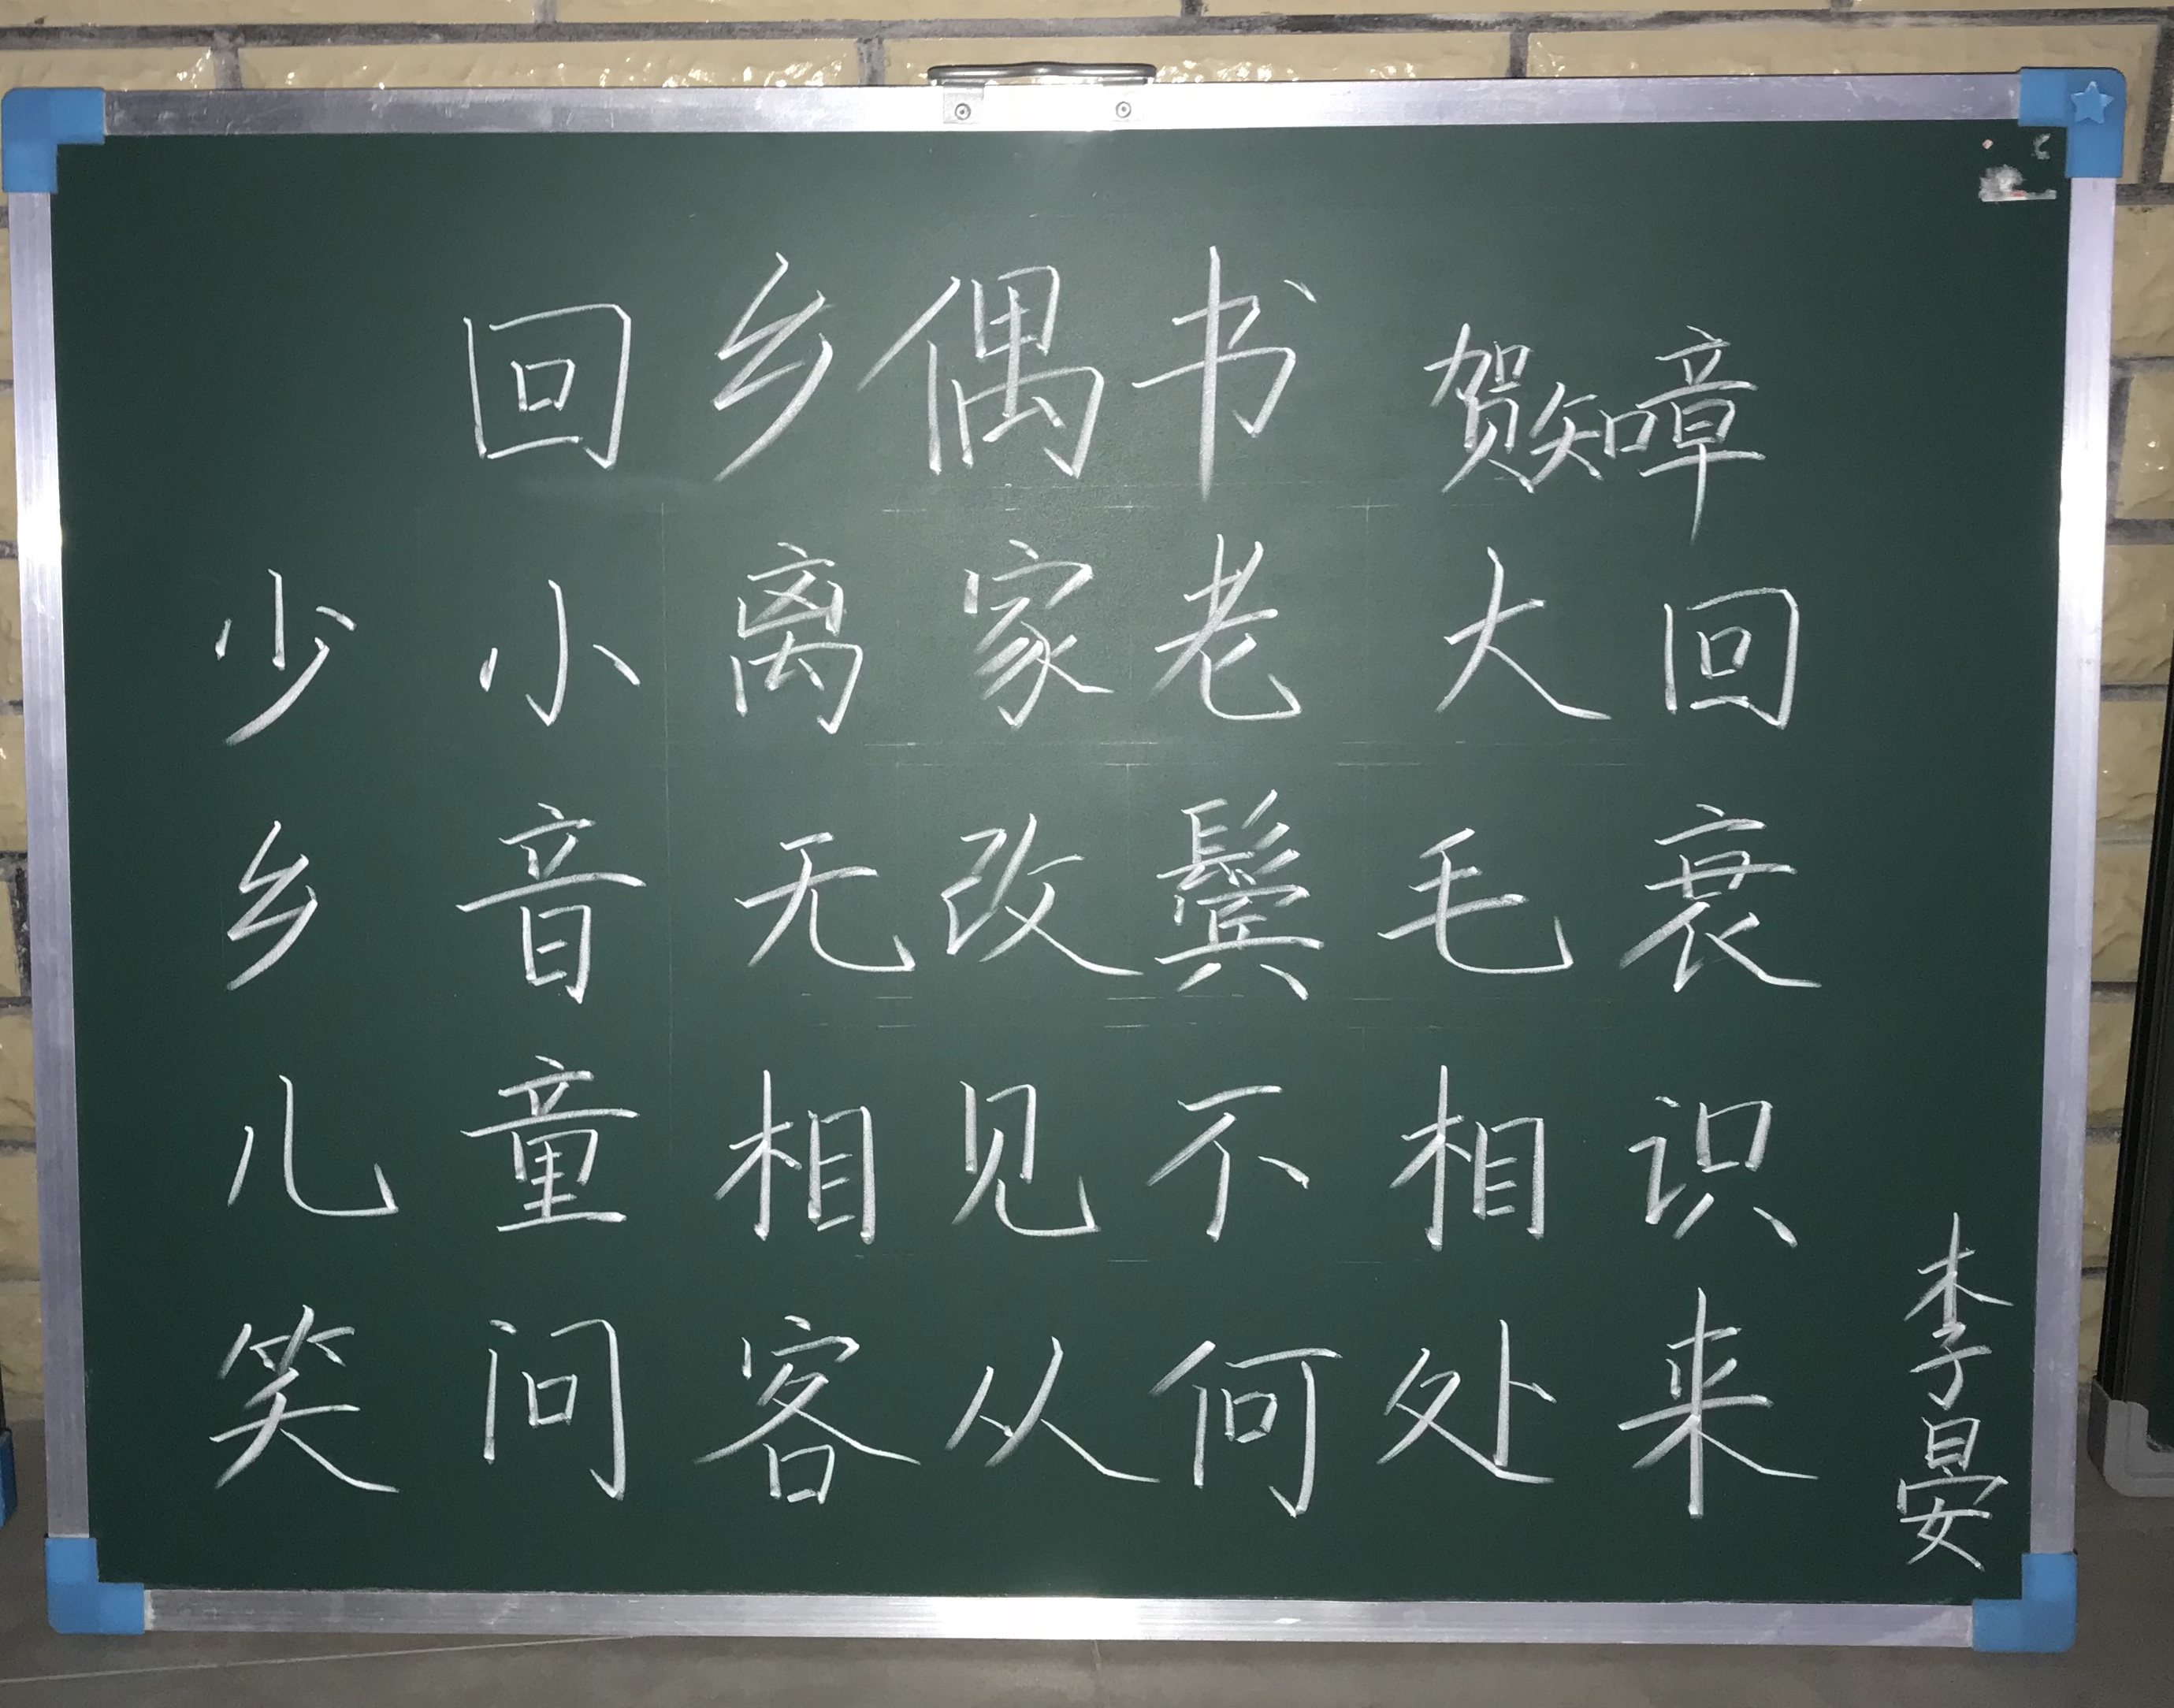 回乡偶书 贺知章
少小离家老大回
乡音无改鬓毛衰
儿童相见不相识
笑问客从何处来
李晏